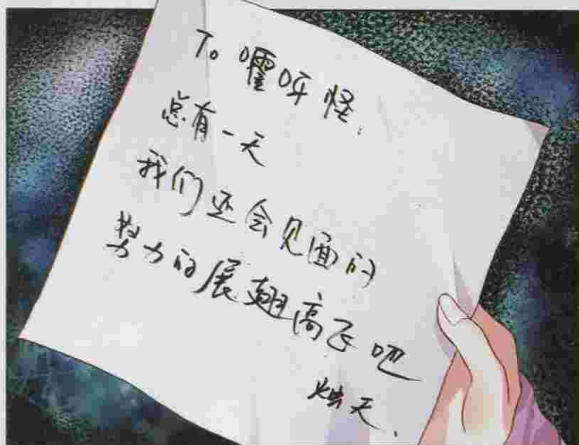 To 嚯呀怪:
总有一天
我们还会见面的
努力的展翅高飞吧
天.